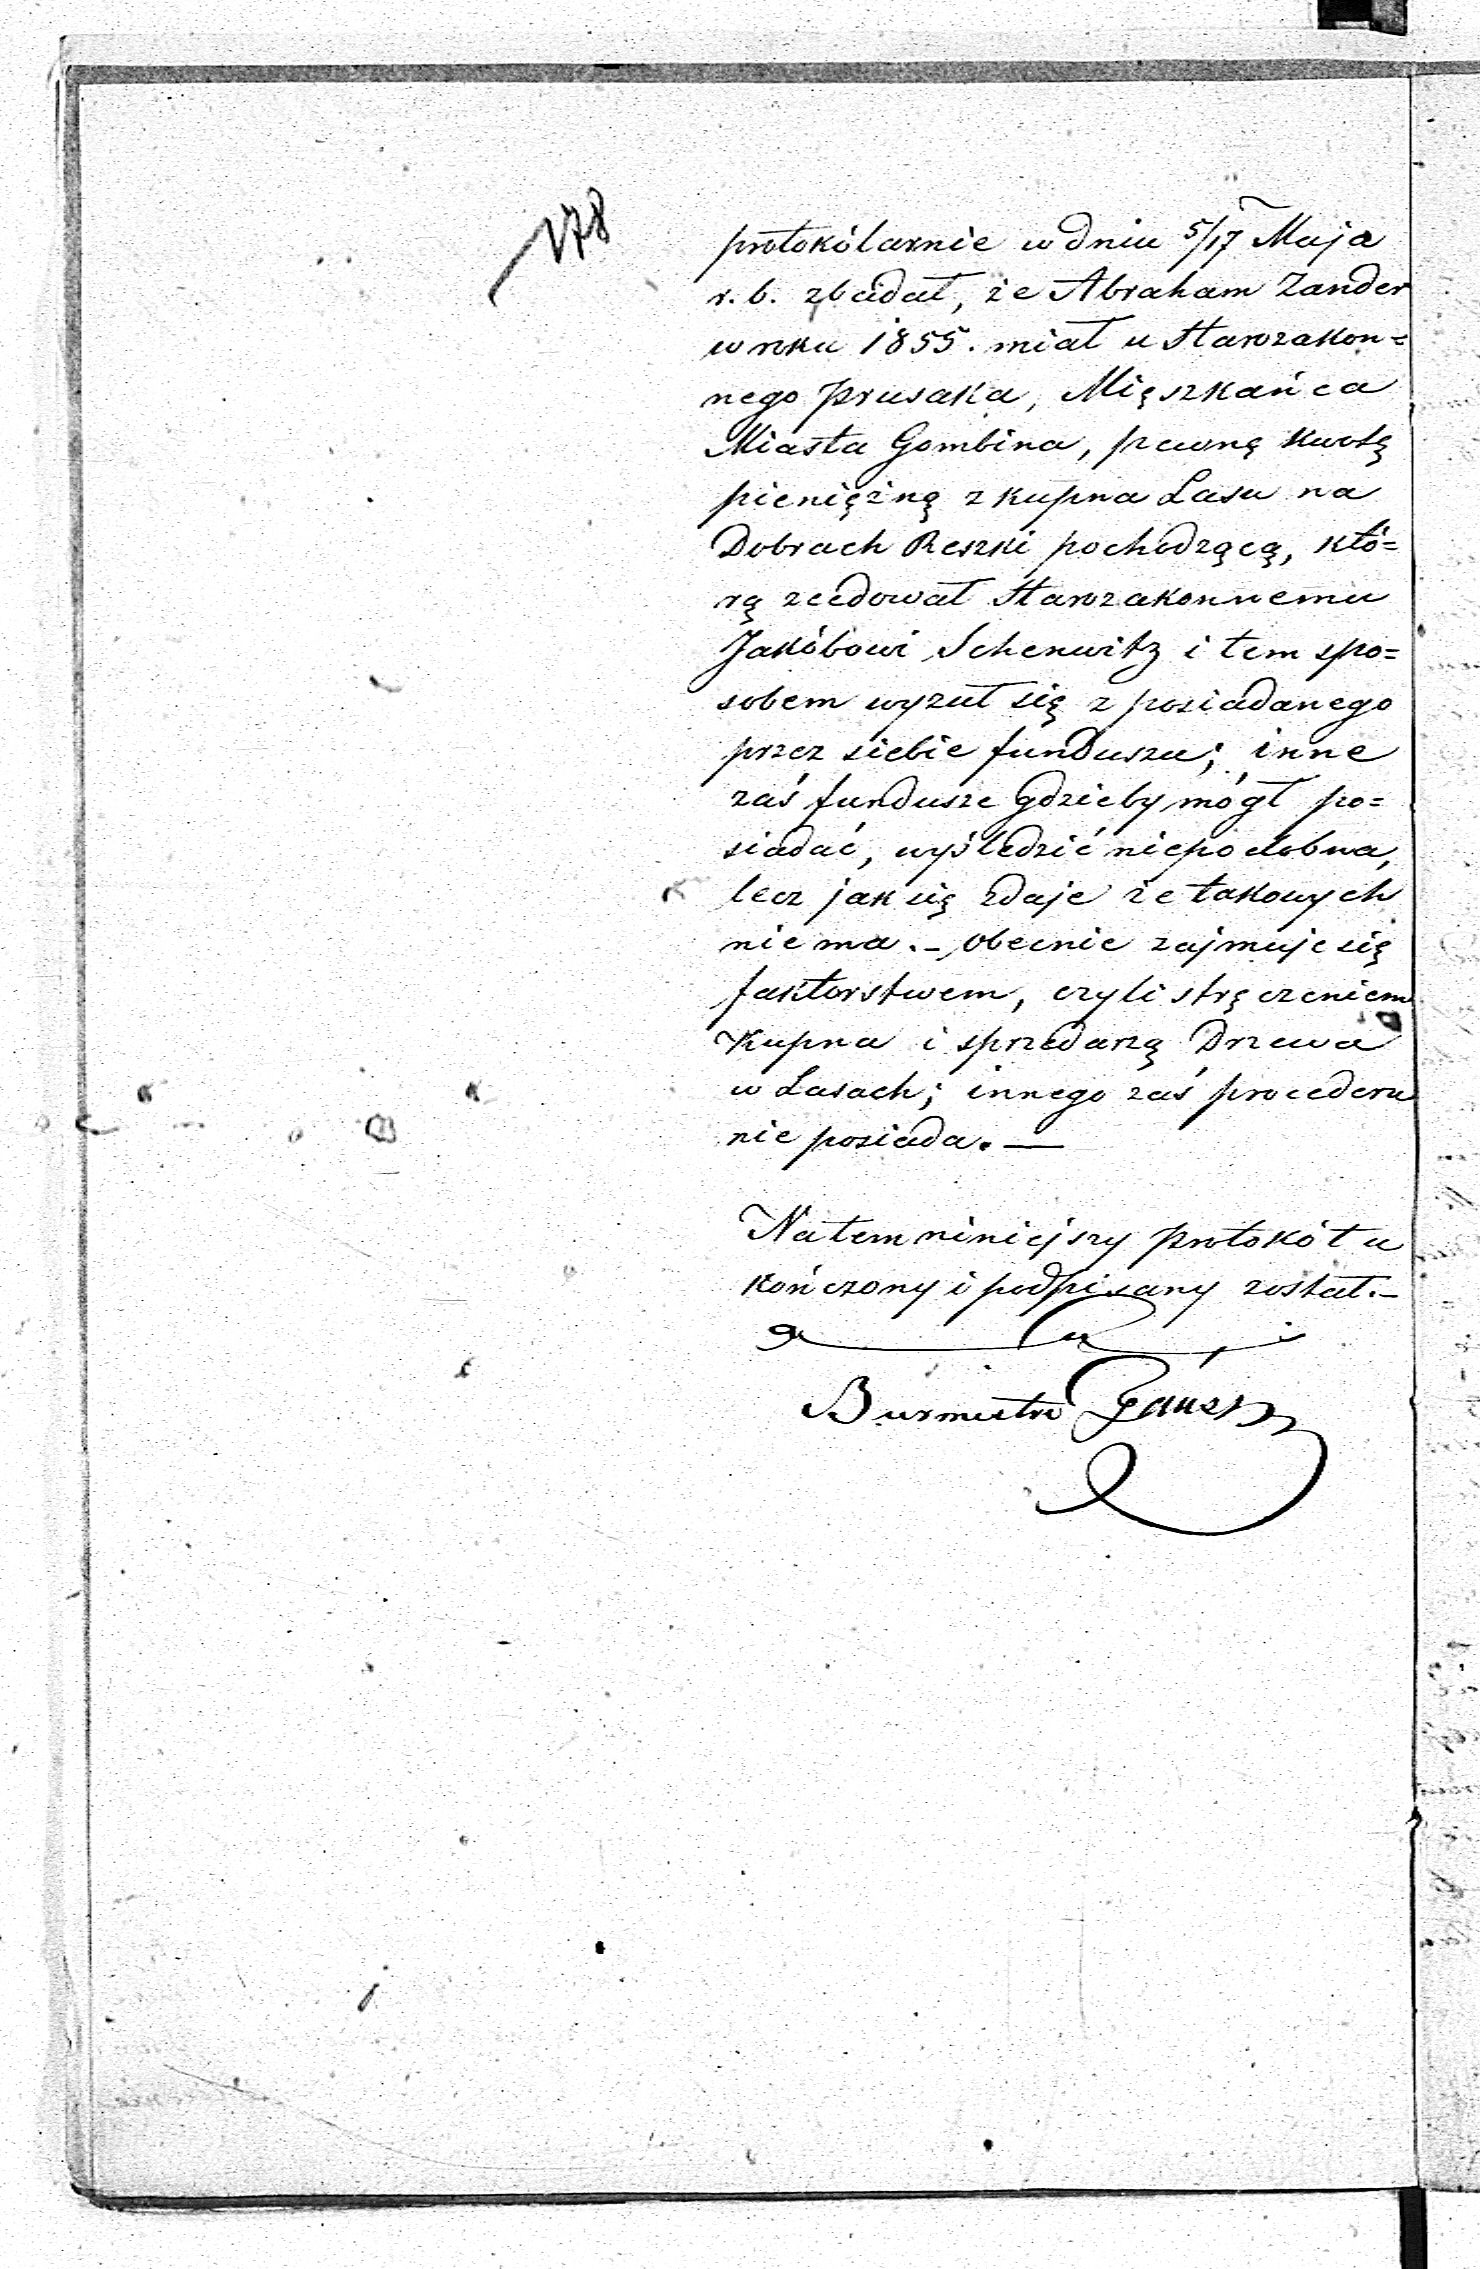 178
protokólarnie w dniu 5/17 Maja
r. b. zbadał, że Abraham Zander
w roku 1855. miał u Starozakon=
nego Prusaka, Mięszkańca
Miasta Gombina, pewną kwotę
pieniężną z kupna Lasu na
Dobrach Reszki pochodzącą, któ=
rą zcedował Starozakonnemu
Jakóbowi Schenwitz i tem spo=
sobem wyzuł się z posiadanego
przez siebie funduszu; inne
zaś fundusze gdzieby mógł po=
siadać, wyśledzić niepodobna,
lecz jak się zdaje że takowych
nie ma. – Obecnie zajmuje się
faktorstwem, czyli stręczeniem
Kupna i sprzedarzą Drzewa
w Lasach; innego zaś procederu
nie posiada. —
Na tem niniejszy protokół u
kończony i podpisany został. –
Burmistrz